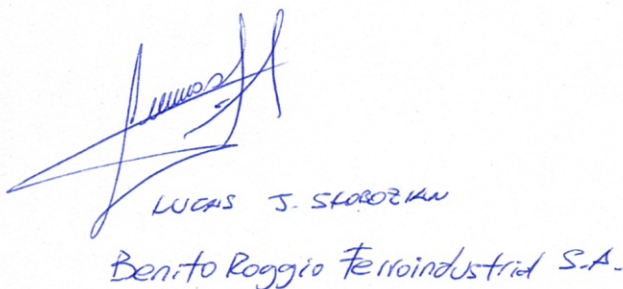 LUCAS J. SLOBOZIAN
Benito Roggio Ferroindustrial S.A.